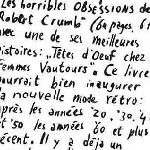 Les horribles obsessions de
Robert Crumb" (60 pages, 61
avec une de ses meilleures
histoires: „Têtes d'Oeuf chez
Femmes Vautours". Ce livre
pourrait bien inaugurer
la nouvelle mode rétro:
après les années 20, 30, 4
et '50 les années 60 et plus
récent. Il y a déjà un